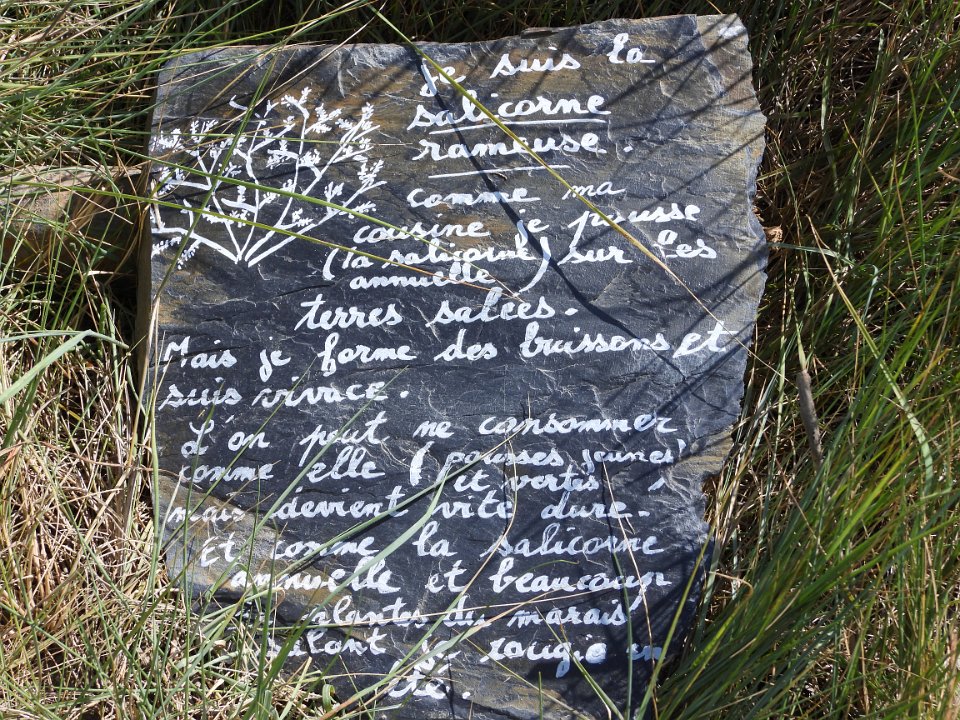 Je suis la
salicorne
rameuse.
comme ma
cousine je pousse
(la salicorne) sur les
annuelle
terres salées.
Mais je forme des buissons et
suis vivace.
L'on peut me consommer
comme elle (pousses jeunes
et vertes),
mais devient vite dure.
Et comme la salicorne
annuelle et beaucoup
plantes du marais
salant je rougis en
été.